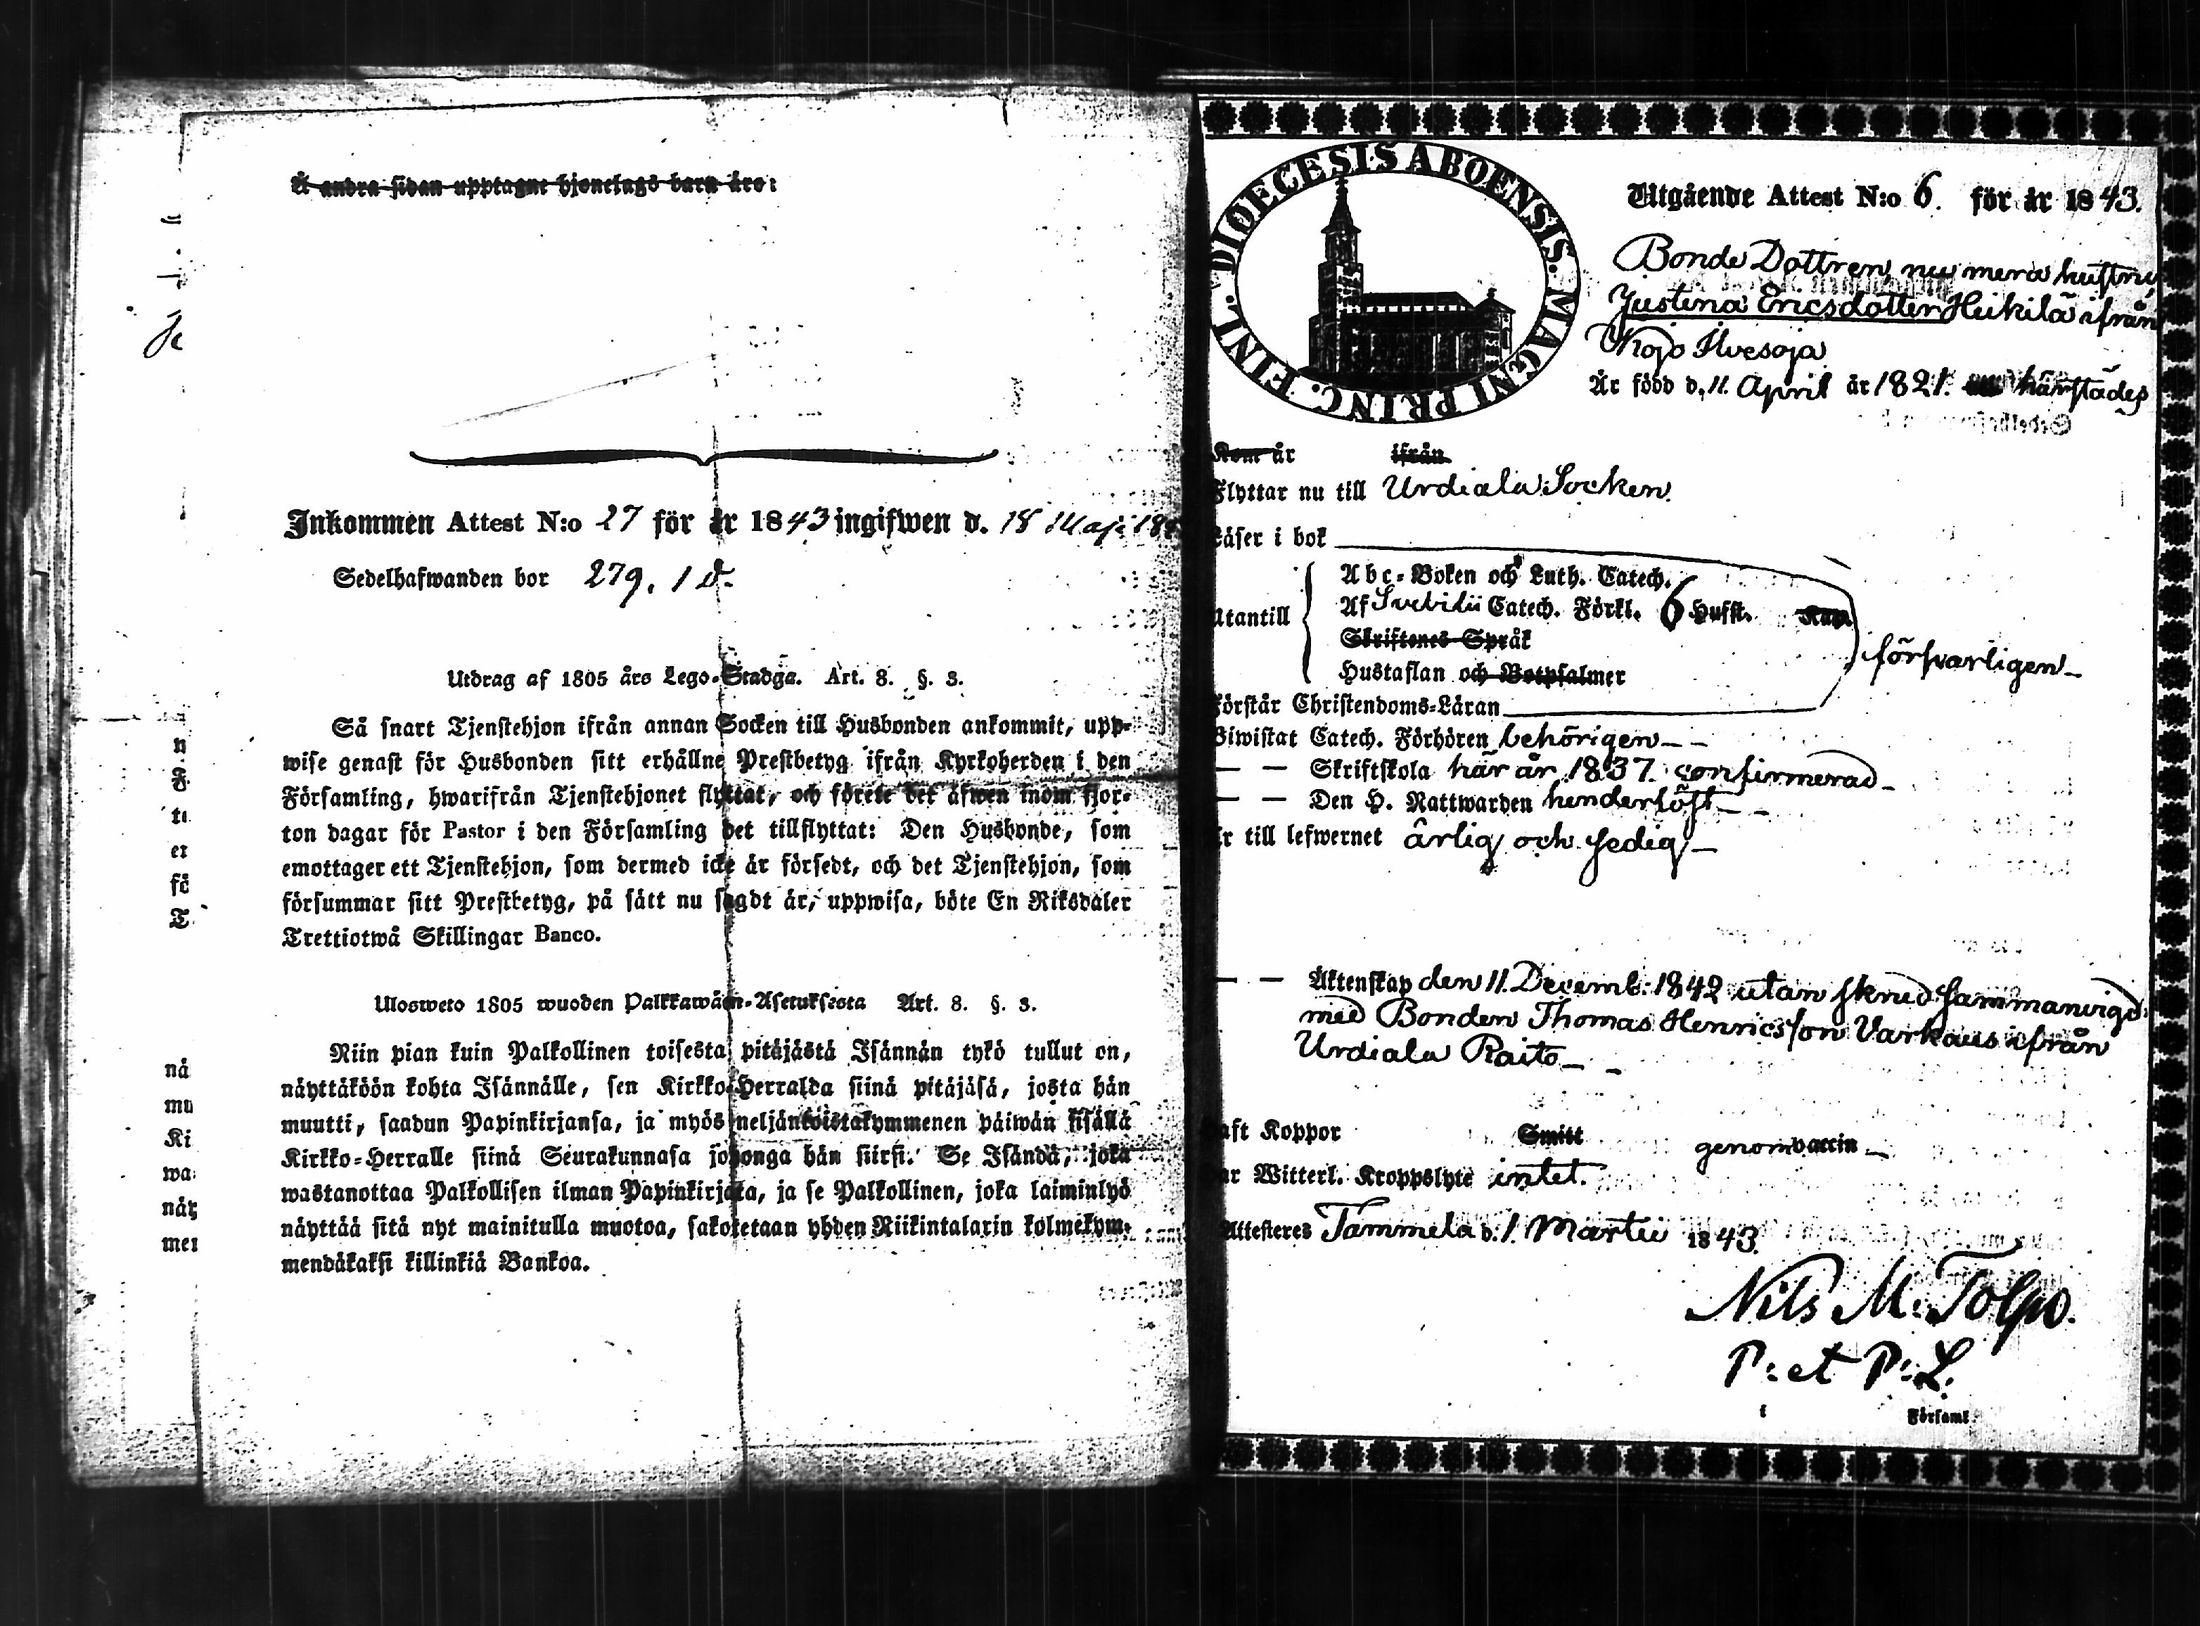 Å andra sidan upptagne hjonelags barn äro:
Inkommen Attest N:o 27 för år 1843 ingifwen d. 18 Maji 184
Sedelhafwanden bor 279. 1 d.
Utdrag af 1805 års Lego-Stadga. Art. 8. §. 3.
Så snart Tjenstehjon ifrån annan Socken till Husbonden ankommit, upp-
wise genast för Husbonden sitt erhållne Prestbetyg ifrån Kyrkoherden i den
Församling, hwarifrån Tjenstehjonet flyttat, och förete det äfwen inom fjor-
ton dagar för Pastor i den Församling det tillflyttat: Den Husbonde, som
emottager ett Tjenstehjon, som dermed icke är försedt, och det Tjenstehjon, som
försummar sitt Prestbetyg, på sätt nu sagdt är, uppwisa, böte En Riksdaler
Trettiotwå Skillingar Banco.
Ulosweto 1805 wuoden Palkkawäen-Asetuksesta Art. 8. §. 3.
Niin pian kuin Palkollinen toisesta pitäjästä Isännän tykö tullut on,
näyttäköön kohta Isännälle, sen Kirkko-Herralda siinä pitäjäsä, josta hän
muutti, saadun Papinkirjansa, ja myös neljäntoistakymmenen päiwän sisällä
Kirkko-Herralle siinä Seurakunnasa johonga hän siirsi. Se Isändä, joka
wastanottaa Palkollisen ilman Papinkirjata, ja se Palkollinen, joka laiminlyö
näyttää sitä nyt mainitulla muotoa, sakotetaan yhden Riikintalarin kolmekym-
mendäkaksi killinkiä Bankoa.
n
F
nå
mu
Ki
wa
näy
DIOECESIS ABOENSIS. MAGNI PRINC. FINL.
Utgående Attest N:o 6. för år 1843.
Bonde Dottren nu mera hustru
Justina Ericsdotter Heikilä ifrån
Kojo Ilvesoja
Är född d. 11. April år 1821. härstädes
Kom år ifrån
Flyttar nu till Urdiala Socken.
Läser i bok
Utantill
Abc-Boken och Luth. Catech.
Af Svebilii Catech. Förkl. 6 Husst. Kap.
Skriftenes Språk
Hustaflan och Botpsalmer
försvarligen
Förstår Christendoms-Läran
Biwistat Catech. Förhören behörigen
— — Skriftskola här år 1837. confirmerad
— — Den H. Nattwarden hinderlöst
Är till lefwernet ärlig och sedig
— — Äktenskap den 11. Decemb: 1842 utan skrud sammanvigd
med Bonden Thomas Henricsson Varkaus ifrån
Urdiala Raito
Haft Koppor Smitt genom vaccin
Har Witterl. Kroppslyte intet.
Attesteres Tammela d. 1. Martii 1843.
Nils M. Tolpo.
P: et P: L.
i Församl.